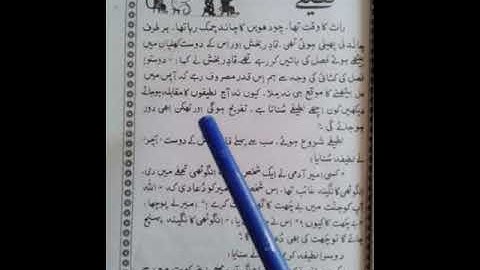 لطیفے
رات کا وقت تھا۔ چودھویں کا چاند چمک رہا تھا۔ ہر طرف
چاندنی پھیلی ہوئی تھی۔ قادر بخش اور اس کے دوست کھلیان میں
بیٹھے ہوئے فصل کی باتیں کر رہے تھے۔ قادر بخش نے کہا: "دوستو!
فصل کی کٹائی کی وجہ سے ہم اس قدر مصروف رہے کہ آپس میں
مل بیٹھنے کا موقع ہی نہ ملا۔ کیوں نہ آج لطیفوں کا مقابلہ ہوجائے
دیکھیں کون اچھے لطیفے سناتا ہے۔ تفریح ہوگی اور تھکن بھی دور
ہو جائے گی۔"
لطیفے شروع ہوئے۔ سب سے پہلے کے دوست
نے لطیفہ سنایا:
"کسی امیر آدمی نے ایک شخص انگوٹھی تحفے میں دی،
انگوٹھی کا نگینہ غائب تھا۔ اس شخص امیر کو دعا دی کہ "اللہ
آپ کو جنت میں بے چھت کا کرے"۔ امیر نے پوچھا،
چھت کا کیوں؟" اس نے انگوٹھی کا نگینہ
جائے گا تو چھت کی بھی
دوسرا لطیفہ نے سنایا: